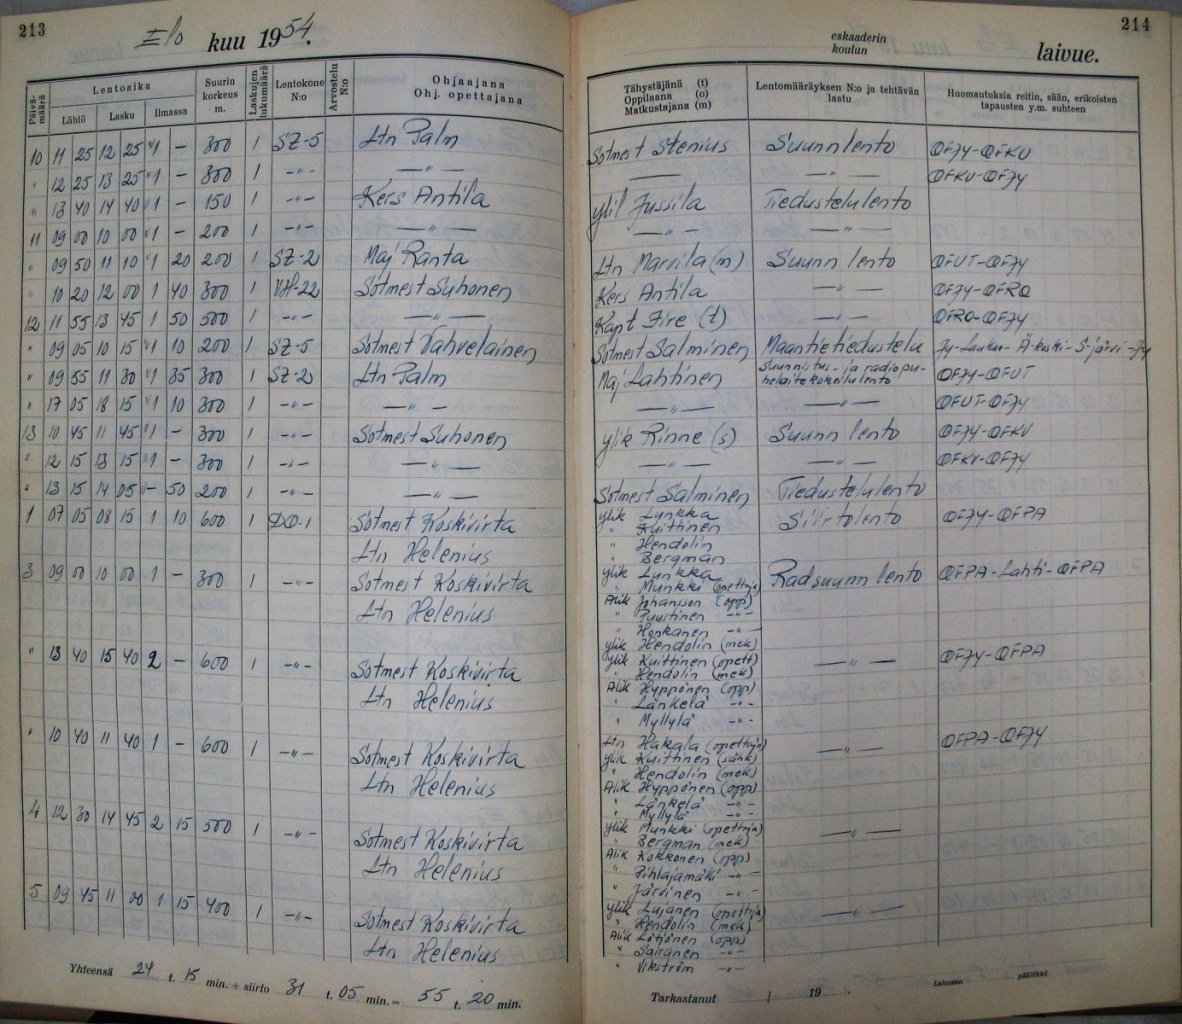 213
Elo kuu 1954.
Päivä-määrä
Lentoaika
Lähtö Lasku Ilmassa
Suurin korkeus m.
Laskujen lukumäärä
Lentokone N:o
Arvostelu N:o
Ohjaajana
Ohj. opettajana
10 11 25 12 25 1 — 300 1 SZ-5 Ltn Palm
" 12 25 13 25 1 — 300 1 -"- —"—
" 13 40 14 40 1 — 150 1 -"- Kers Antila
11 09 00 10 00 1 — 200 1 -"- —"—
" 09 50 11 10 1 20 200 1 SZ-2 Maj Ranta
" 10 20 12 00 1 40 300 1 VH-22 Sotmest Suhonen
12 11 55 13 45 1 50 500 1 -"- —"—
" 09 05 10 15 1 10 200 1 SZ-5 Sotmest Vahvelainen
" 09 55 11 30 1 35 300 1 SZ-2 Ltn Palm
" 17 05 18 15 1 10 300 1 -"- —"—
13 10 45 11 45 1 — 300 1 -"- Sotmest Suhonen
" 12 15 13 15 1 — 300 1 -"- —"—
" 13 15 14 05 — 50 200 1 -"- —"—
1 07 05 08 15 1 10 600 1 DO-1 Sotmest Koskivirta
Ltn Helenius
3 09 00 10 00 1 — 300 1 -"- Sotmest Koskivirta
Ltn Helenius
" 13 40 15 40 2 — 600 1 -"- Sotmest Koskivirta
Ltn Helenius
" 10 40 11 40 1 — 600 1 -"- Sotmest Koskivirta
Ltn Helenius
4 12 30 14 45 2 15 500 1 -"- Sotmest Koskivirta
Ltn Helenius
5 09 45 11 00 1 15 400 1 -"- Sotmest Koskivirta
Ltn Helenius
Yhteensä 24 t. 15 min. + siirto 31 t. 05 min. = 55 t. 20 min.
214
eskaaderin
koulun
laivue.
Tähystäjänä (t)
Oppilaana (o)
Matkustajana (m)
Lentomääräyksen N:o ja tehtävän laatu
Huomautuksia reitin, sään, erikoisten tapausten y.m. suhteen
Sotmest Stenius Suunnlento OFJY-OFKU
—— —"— OFKU-OFJY
ylil Jussila Tiedustelulento
—"— —"—
Ltn Marvila (m) Suunn lento OFUT-OFJY
Kers Antila —"— OFJY-OFRO
Kapt Fire (t) —"— OFRO-OFJY
Sotmest Salminen Maantietiedustelu Jy-Laukaa-Ä-koski-S-järvi-Jy
Maj Lahtinen Suunnistus- ja radiopu-
helaitekokeilulento OFJY-OFUT
—"— —"— OFUT-OFJY
ylik Rinne (s) Suunn lento OFJY-OFKU
—"— —"— OFKU-OFJY
Sotmest Salminen Tiedustelulento
ylik Lynkka Siirtolento OFJY-OFPA
" Kuittinen
" Hendolin
" Bergman
ylik Lynkka Radsuunn lento OFPA-Lahti-OFPA
" Munkki (opettaja)
Alik Johansson (opp)
" Puustinen -"-
" Honkanen -"-
ylik Hendolin (mek)
ylik Kuittinen (opett) —"— OFJY-OFPA
" Hendolin (mek)
Alik Hyppönen (opp)
" Länkelä -"-
" Myllylä -"-
Ltn Hakala (opettaja) —"— OFPA-OFJY
ylik Kuittinen (sähk)
" Hendolin (mek)
Alik Hyppönen (opp)
" Länkelä -"-
" Myllylä -"-
ylik Munkki (opettaja) —"—
" Bergman (mek)
Alik Kokkonen (opp)
" Pihlajamäki -"-
" Järvinen -"-
ylik Lujanen (opettaja) —"—
" Hendolin (mek)
Alik Lötjönen (opp)
" Sairanen -"-
" Vikström -"-
Tarkastanut / 19 Laivueen päällikkö